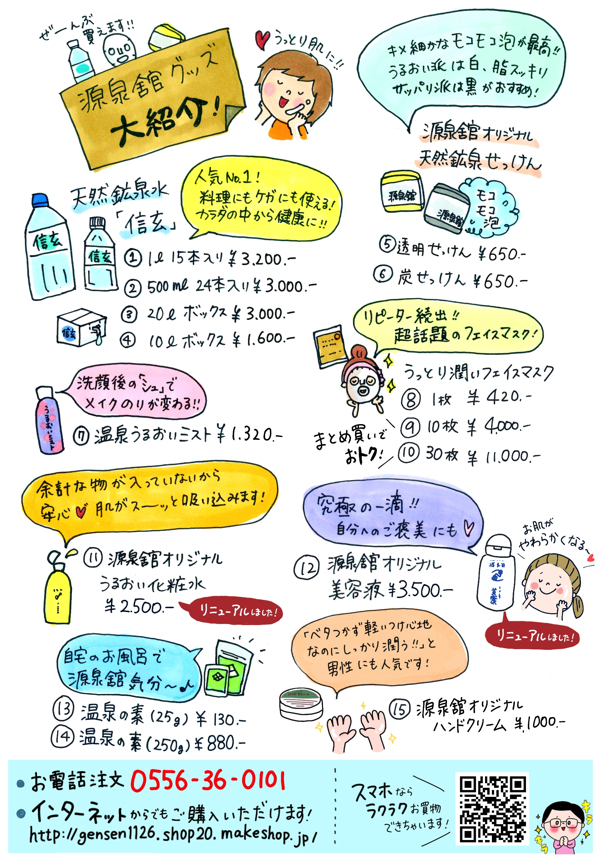 ぜーんぶ
買えます!!
源泉舘グッズ
大紹介!
うっとり肌に!!
キメ細かなモコモコ泡が最高!!
うるおい派は白、脂スッキリ
サッパリ派は黒がおすすめ!
源泉舘オリジナル
天然鉱泉せっけん
源泉舘
源泉舘
モコ
モコ
泡
⑤透明せっけん ¥650.-
⑥炭せっけん ¥650.-
天然鉱泉水
「信玄」
信玄
信玄
信玄
人気No.1!
料理にもケガにも使える!
カラダの中から健康に!!
①1ℓ 15本入り ¥3.200.-
②500mℓ 24本入り ¥3.000.-
③20ℓ ボックス ¥3.000.-
④10ℓ ボックス ¥1.600.-
リピーター続出!!
超話題のフェイスマスク!
うっとり潤いフェイスマスク
⑧1枚 ¥420.-
⑨10枚 ¥4.000.-
⑩30枚 ¥11.000.-
まとめ買いで
おトク!
洗顔後の「シュ」で
メイクのりが変わる!!
うるおいミスト
⑦温泉うるおいミスト ¥1.320.-
余計な物が入っていないから
安心♥肌がスーッと吸い込みます!
⑪源泉舘オリジナル
うるおい化粧水
¥2.500.-
リニューアルしました!
究極の一滴!!
自分へのご褒美にも♥
⑫源泉舘オリジナル
美容液 ¥3.500.-
お肌が
やわらかくなる〜
リニューアルしました!
自宅のお風呂で
源泉舘気分〜♪
⑬温泉の素(25g) ¥130.-
⑭温泉の素(250g) ¥880.-
「ベタつかず軽いつけ心地
なのにしっかり潤う!!」と
男性にも人気です!
⑮源泉舘オリジナル
ハンドクリーム ¥1,000.-
●お電話注文 0556-36-0101
●インターネットからでもご購入いただけます!
http://gensen1126.shop20.makeshop.jp/
スマホなら
ラクラクお買物
できちゃいます!